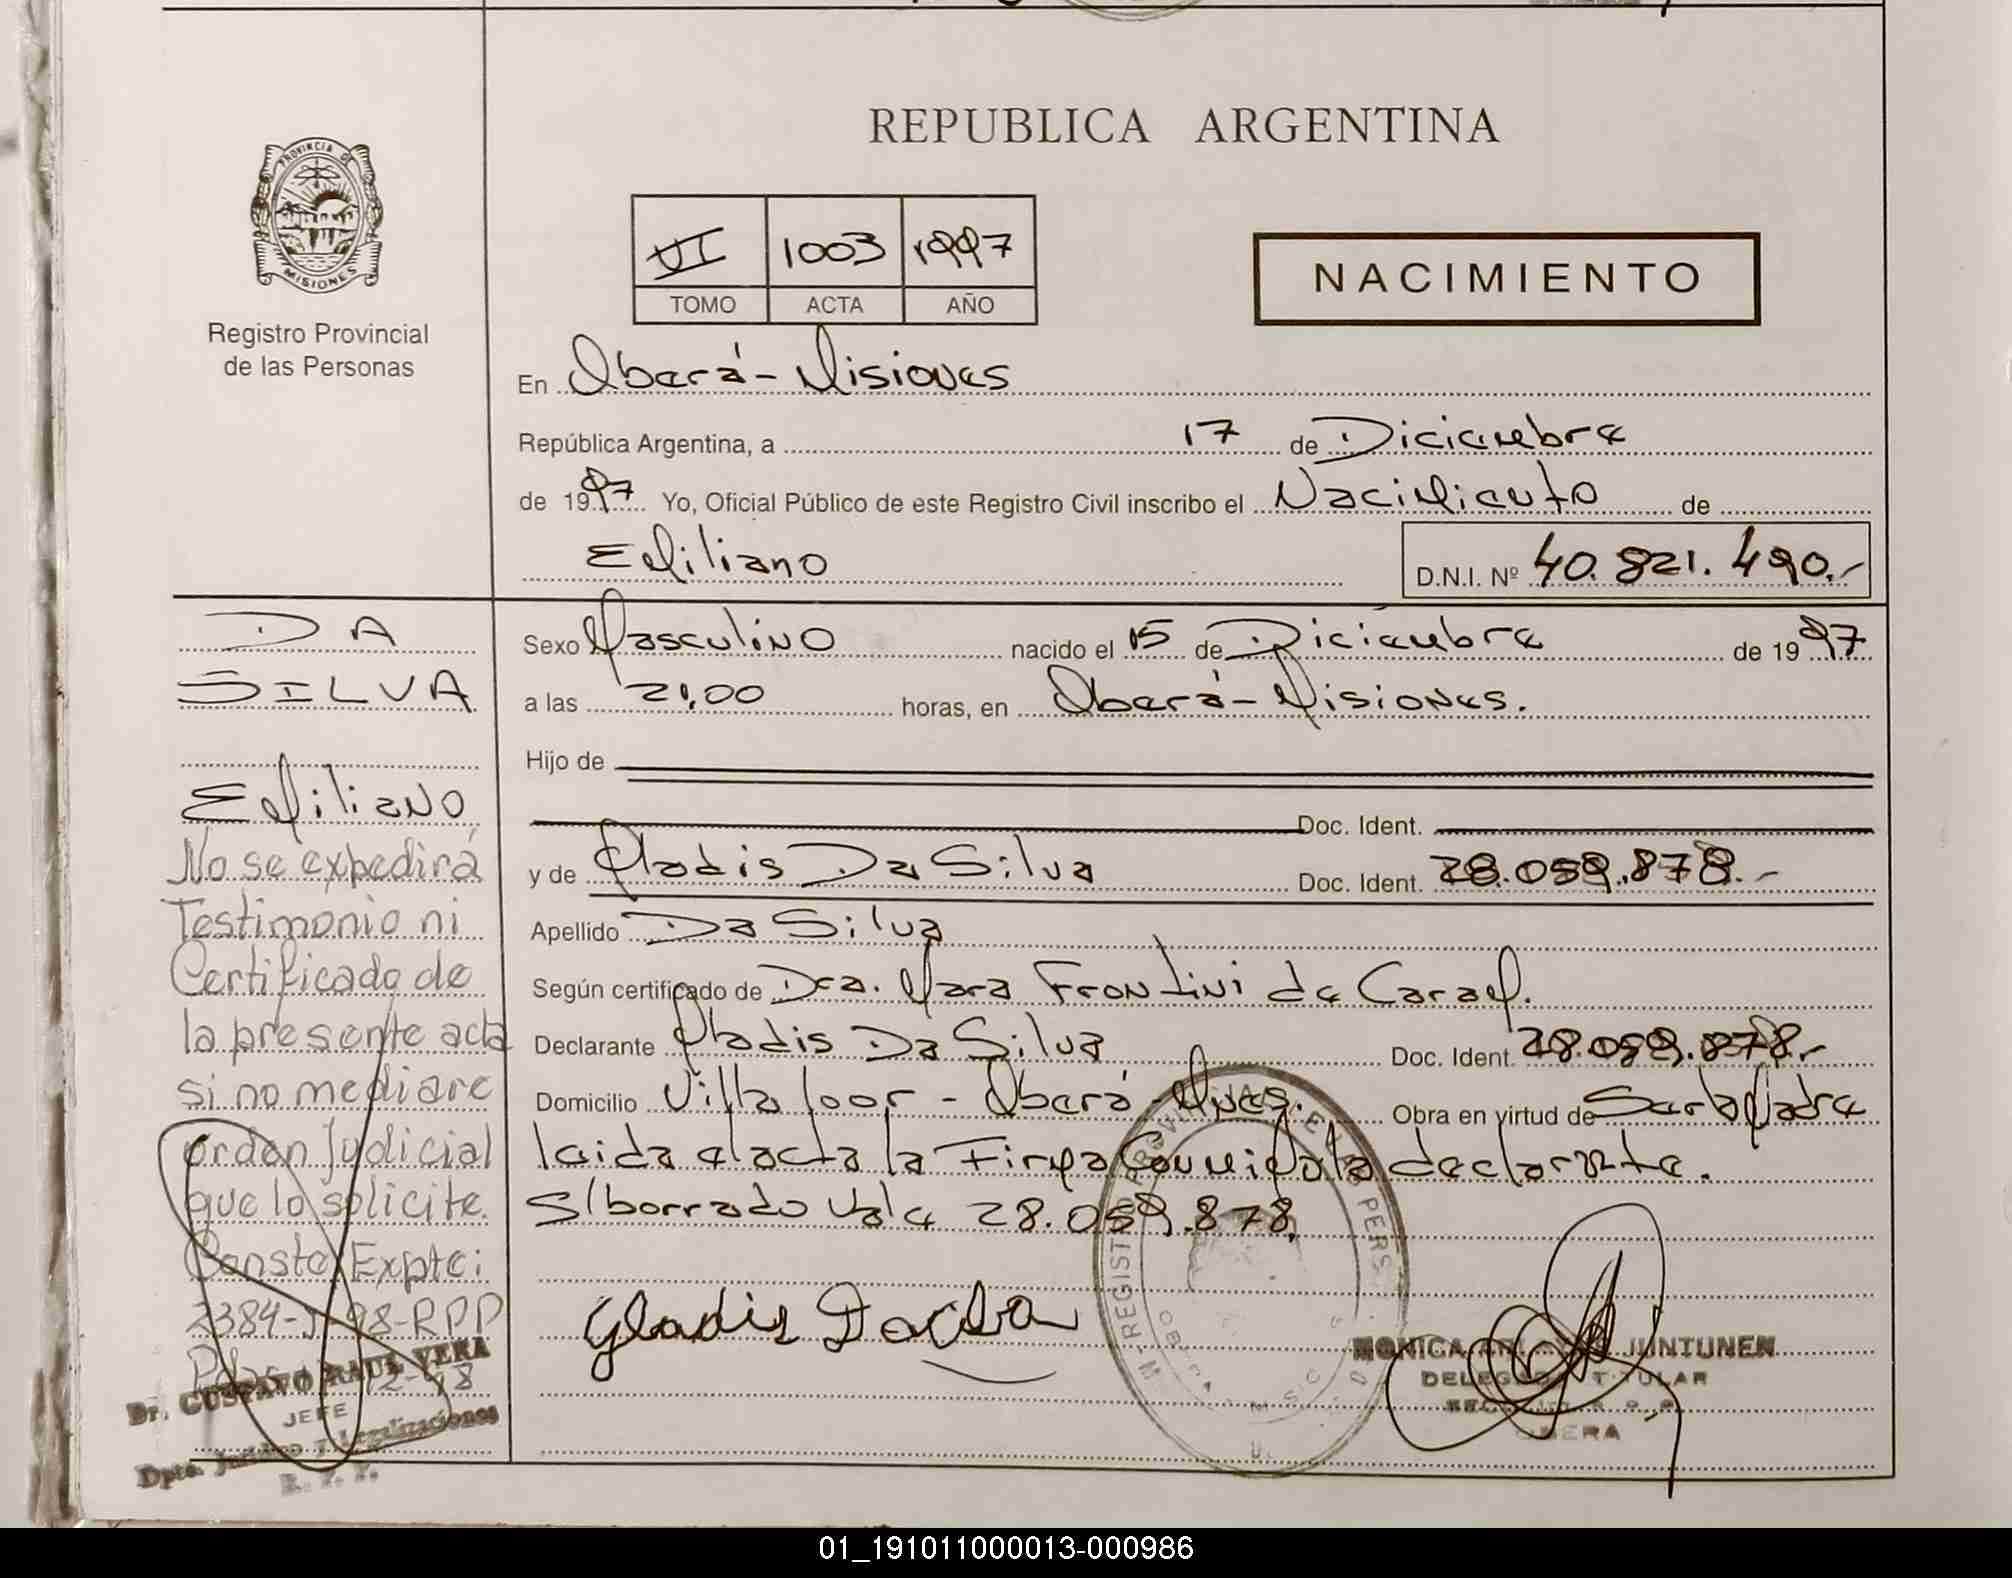 REPUBLICA ARGENTINA
PROVINCIA DE
MISIONES
Registro Provincial
de las Personas
VI 1003 1997
TOMO ACTA AÑO
NACIMIENTO
En Oberá - Misiones
República Argentina, a 17 de Diciembre
de 1997 Yo, Oficial Público de este Registro Civil inscribo el Nacimiento de
Emiliano D.N.I. Nº 40.821.490.-
DA
SILVA
Emiliano
No se expedirá
Testimonio ni
Certificado de
la presente acta
si no mediare
orden judicial
que lo solicite.
Conste Expte:
2384- 98-RPP
Dr. GUSTAVO RAUL VERA
JEFE
Dpto. Jurídico y Legalizaciones
R. P. P.
Sexo Masculino nacido el 15 de Diciembre de 1997
a las 21,00 horas, en Oberá - Misiones.
Hijo de
Doc. Ident.
y de Gladis Da Silva Doc. Ident. 28.059.878.-
Apellido Da Silva
Según certificado de Dra. Mara Frontini de
Declarante Gladis Da Silva Doc. Ident. 28.059.878.-
Domicilio Villa - Oberá - Mnes. Obra en virtud de Ser la Madre
leida el acta la Firma Conmigo la declarante.
S/borrado vale 28.059.878.
Gladis Dasilva
MONICA JUNTUNEN
DELEGADA TITULAR
OBERA